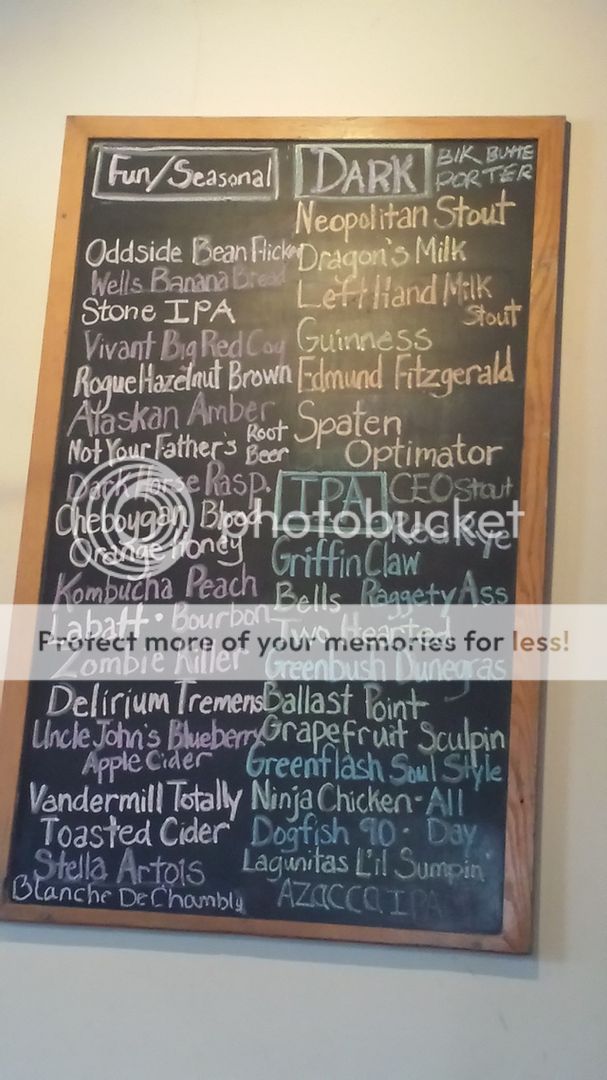 Fun/Seasonal
Oddside Bean Flicker
Wells Banana Bread
Stone IPA
Vivant Big Red Coq
Rogue Hazelnut Brown
Alaskan Amber
Not Your Father's Root
Beer
Dark Horse Rasp.
Cheboygan Blood
Orange Honey
Kombucha Peach
Labatt · Bourbon
Zombie Killer
Delirium Tremens
Uncle John's Blueberry
Apple Cider
Vandermill Totally
Toasted Cider
Stella Artois
Blanche De Chambly
DARK
BIK BUTTE
PORTER
Neopolitan Stout
Dragon's Milk
Left Hand Milk
Stout
Guinness
Edmund Fitzgerald
Spaten
Optimator
CEO Stout
IPA
Red Rye
Griffin Claw
Bells Raggety Ass
Two Hearted
Greenbush Dunegras
Ballast Point
Grapefruit Sculpin
Greenflash Soul Style
Ninja Chicken - All
Dogfish 90 · Day
Lagunitas L'il Sumpin'
AZACCA IPA
photobucket
Protect more of your memories for less!